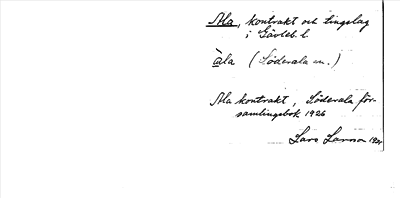 Ala, kontrakt och tingslag
i Gävleb. l.
àla (Söderala sn.)
Ala kontrakt, Söderala för-
samlingsbok 1926
Lars Larsson